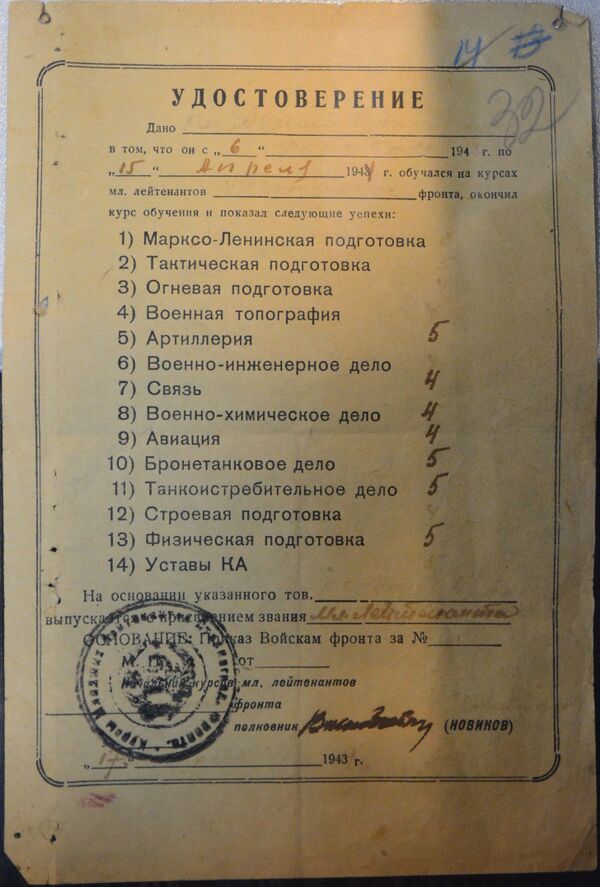 14
32
УДОСТОВЕРЕНИЕ
Дано
в том, что он с „ 6 “ 194 г. по
„ 15 “ Апреля 1943 г. обучался на курсах
мл. лейтенантов фронта, окончил
курс обучения и показал следующие успехи:
1) Марксо-Ленинская подготовка
2) Тактическая подготовка
3) Огневая подготовка
4) Военная топография
5) Артиллерия 5
6) Военно-инженерное дело
7) Связь 4
8) Военно-химическое дело 4
9) Авиация 4
10) Бронетанковое дело 5
11) Танкоистребительное дело 5
12) Строевая подготовка
13) Физическая подготовка 5
14) Уставы КА
На основании указанного тов.
выпускается с присвоением звания Мл. Лейтенанта
ОСНОВАНИЕ: Приказ Войскам фронта за №
от
Начальник курсов мл. лейтенантов
фронта
полковник (НОВИКОВ)
„ 17 “ 1943 г.